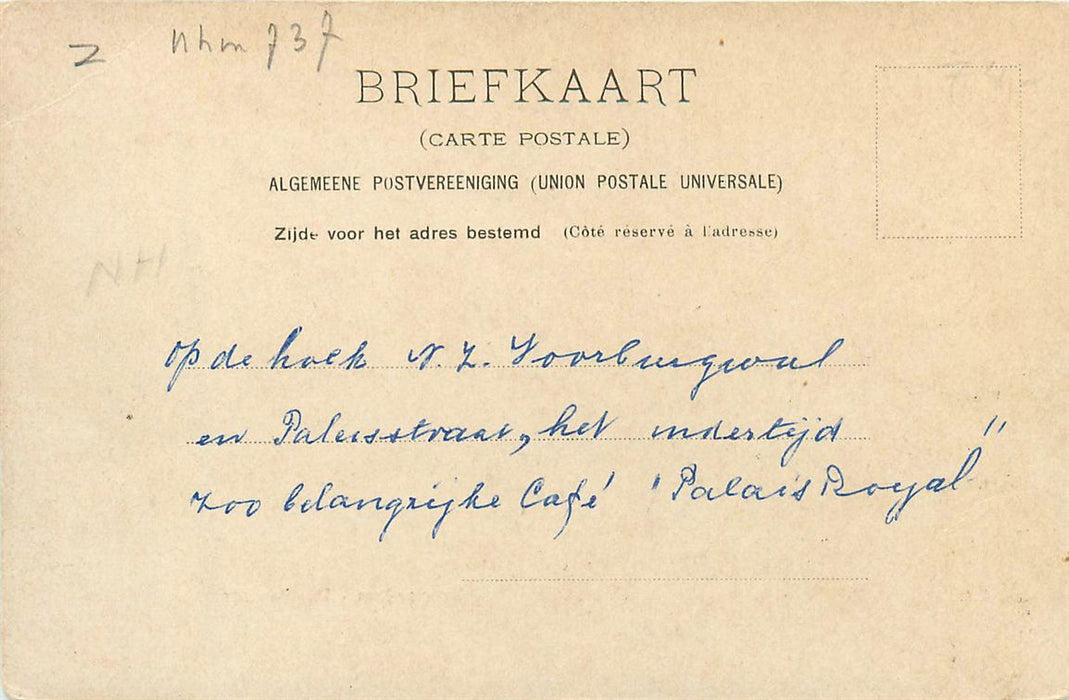 Z
Nhm 737
BRIEFKAART
(CARTE POSTALE)
ALGEMEENE POSTVEREENIGING (UNION POSTALE UNIVERSALE)
Zijde voor het adres bestemd (Côté réservé à l'adresse)
NH
Op de hoek N.Z. Voorburgwal
en Paleisstraat, het indertijd
zoo belangrijke Café "Palais Royal"